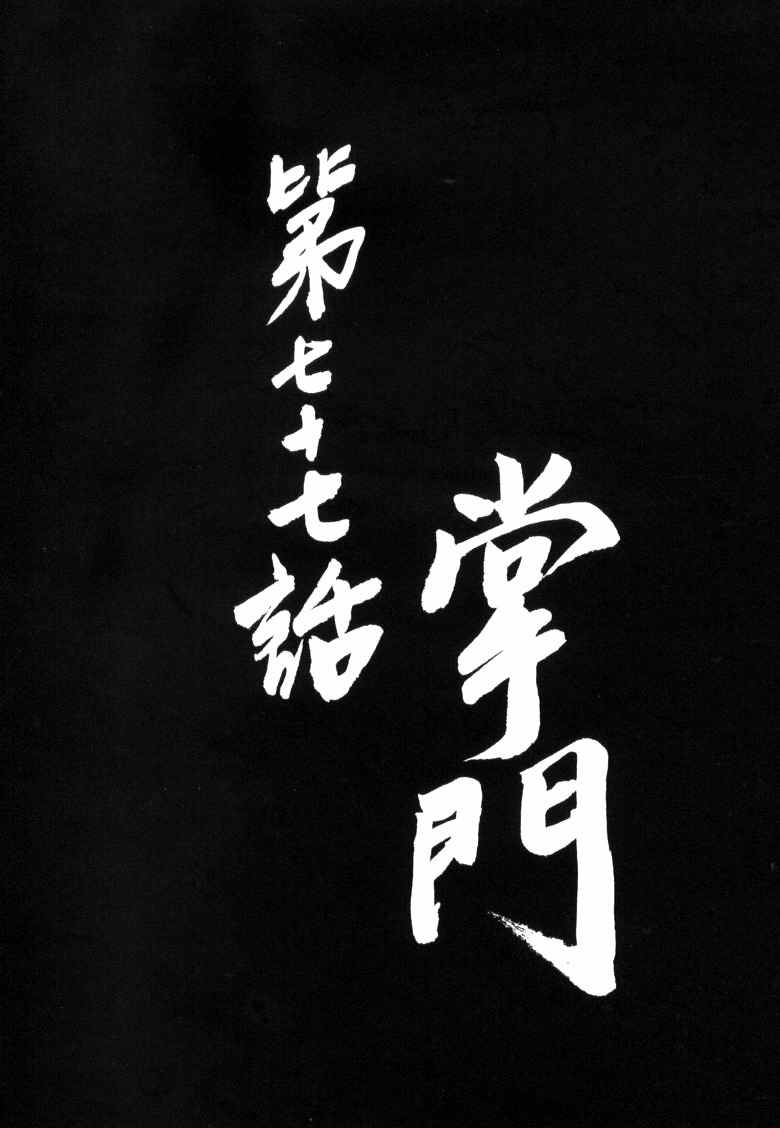 掌門
第七十七話